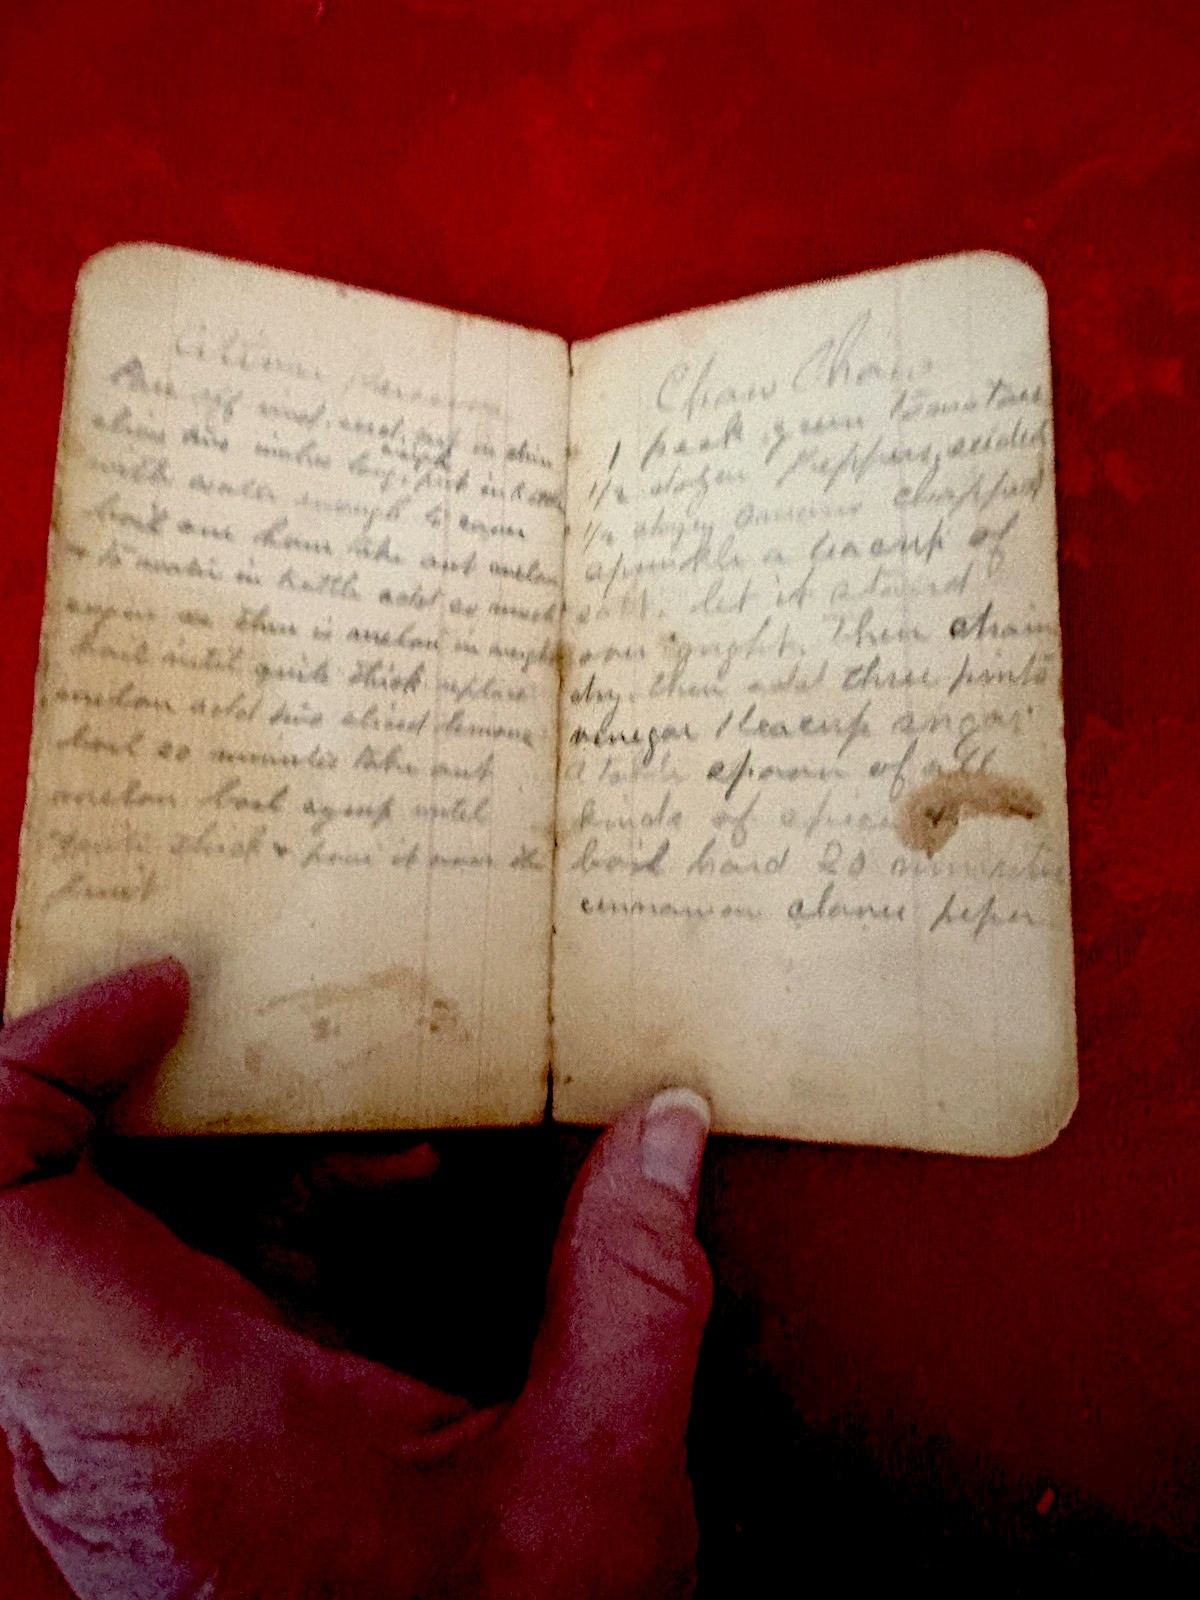 Citron Preserve
Pare off rind, seed, cut in thin
slices two inches long, weigh, put in kettle
with water enough to cover
boil one hour take out melon
to water in kettle add as much
sugar as there is melon in weight
boil until quite thick replace
melon add two sliced lemons
boil 20 minutes take out
melon boil syrup until
quite thick & pour it over the
fruit
Chow Chow
1 peck green tomatoes
1/2 dozen Peppers, seeded
1/2 dozen onions chopped
sprinkle a teacup of
salt. let it stand
over night. Then drain
dry. then add three pints
vinegar 1 teacup sugar
a table spoon of all
kinds of spices
boil hard 20 minutes
cinnamon cloves peper